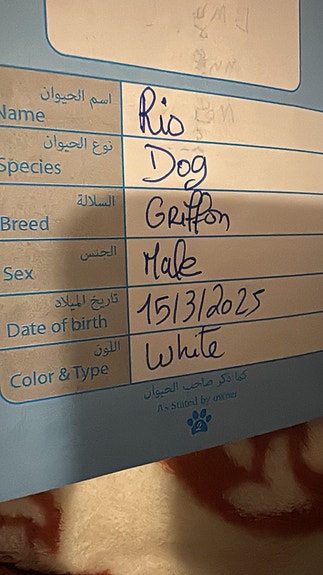 اسم الحيوان
Name
Rio
نوع الحيوان
Species
Dog
السلالة
Breed
Griffon
الجنس
Sex
Male
تاريخ الميلاد
Date of birth
15/3/2025
اللون
Color & Type
White
كما ذكر صاحب الحيوان
As Stated by owner
2